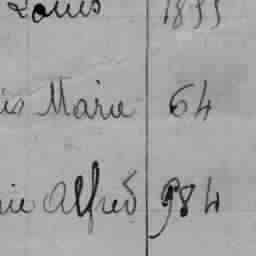 Louis 1899
is Marie 64
ie Alfred 984